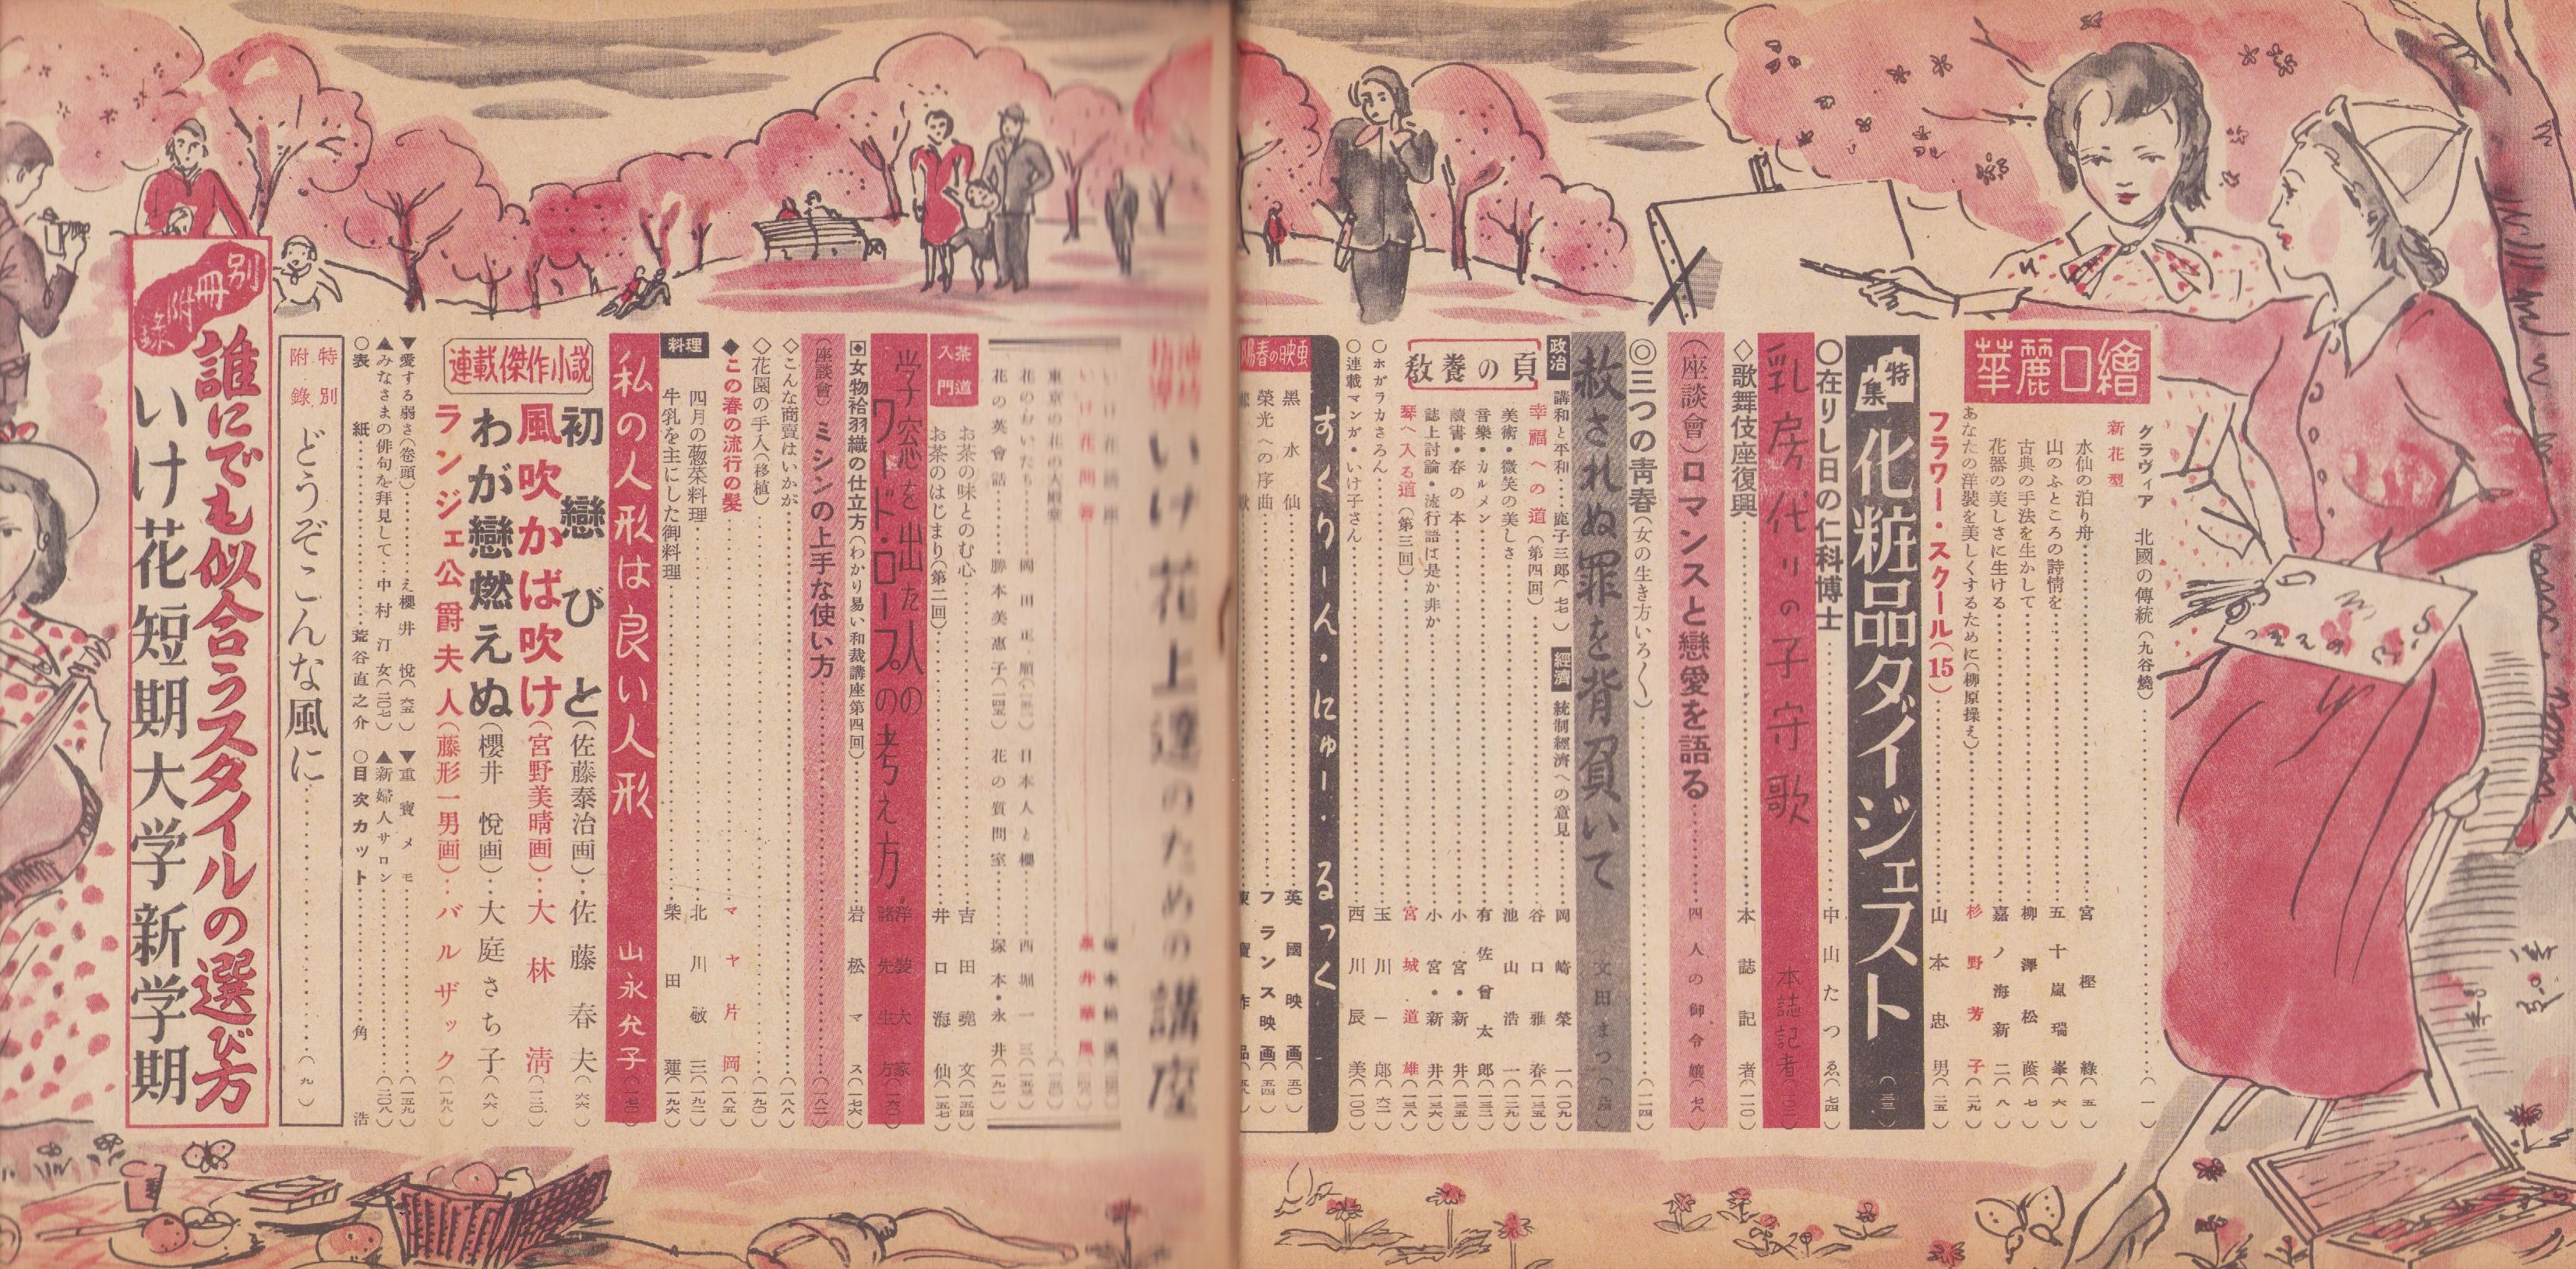 華麗口繪
グラヴィア 北國の傳統(九谷燒)‥‥(一)
新花型
水仙の泊り舟‥‥宮樫綠(五)
山のふところの詩情を‥‥五十嵐瑞峯(六)
古典の手法を生かして‥‥柳澤松蔭(七)
花器の美しさに生ける‥‥嘉ノ海新二(八)
あなたの洋裝を美しくするために(柳原操え)‥‥杉野芳子(二九)
フラワー・スクール(15)‥‥山本忠男(二五)
特集 化粧品ダイジェスト(三三)
○在りし日の仁科博士‥‥中山たつゑ(七四)
乳房代りの子守歌 本誌記者
◇歌舞伎座復興‥‥本誌記者(一一〇)
(座談會)ロマンスと戀愛を語る‥‥四人の御令孃(七八)
◎三つの青春(女の生き方いろ〱)‥‥(一一四)
赦されぬ罪を背負いて 文田まつ
政治 講和と平和‥‥鹿子三郎(七七) 經濟 統制經濟への意見‥‥岡崎榮一(一〇九)
教養の頁
幸福への道(第四回)‥‥谷口雅春(一三五)
美術・微笑の美しさ‥‥池山浩一(一二九)
音樂・カルメン‥‥有佐曾太郎(一三二)
讀書・春の本‥‥小宮・新井(一三五)
誌上討論・流行語は是か非か‥‥小宮・新井(一三六)
琴へ入る道(第三回)‥‥宮城道雄(一三八)
○ホガラカさろん‥‥玉川一郎(六二)
○連載マンガ・いけ子さん‥‥西川辰美(一〇〇)
すくりーん・にゅー・るっく
陽春の映画
黑水仙‥‥英國映画(五〇)
榮光への序曲‥‥フランス映画(五四)
いけ花上達のための講座
花のおいたち‥‥岡田正順 日本人と櫻‥‥西堀一三
花の英會話‥‥勝本美惠子(一四五) 花の質問室‥‥塚本・永井(一九一)
茶道入門
お茶の味とのむ心‥‥吉田堯文(一五四)
お茶のはじまり(第二回)‥‥井口海仙(一五七)
学窓を出た人のワードロープの考え方 洋裝大家諸先生方
◻女物袷羽織の仕立方(わかり易い和裁講座第四回)‥‥岩松マス(一七六)
(座談會)ミシンの上手な使い方‥‥(一八二)
◇こんな商賣はいかが‥‥(一八八)
◇花園の手入(移植)‥‥(一九〇)
◆この春の流行の髮‥‥マヤ片岡(一八五)
料理
四月の惣菜料理‥‥北川敏三(一九二)
牛乳を主にした御料理‥‥柴田蓮(一九六)
私の人形は良い人形 山永允子
連載傑作小説
初戀びと(佐藤泰治画)‥佐藤春夫(六六)
風吹かば吹け(宮野美晴画)‥大林淸(一二〇)
わが戀燃えぬ(櫻井悅画)‥大庭さち子(八六)
ランジェ公爵夫人(藤形一男画)‥バルザック(一九八)
▼愛する弱さ(卷頭)‥‥え櫻井悅(六五) ▼重寶メモ‥‥(一五九)
▲みなさまの俳句を拜見して‥中村汀女(一〇七) ▲新婦人サロン‥‥(二〇八)
○表紙‥‥荒谷直之介 ○目次カット‥‥角浩
特別附錄 どうぞこんな風に‥‥(九)
別冊附錄
誰にでも似合うスタイルの選び方
いけ花短期大学新学期